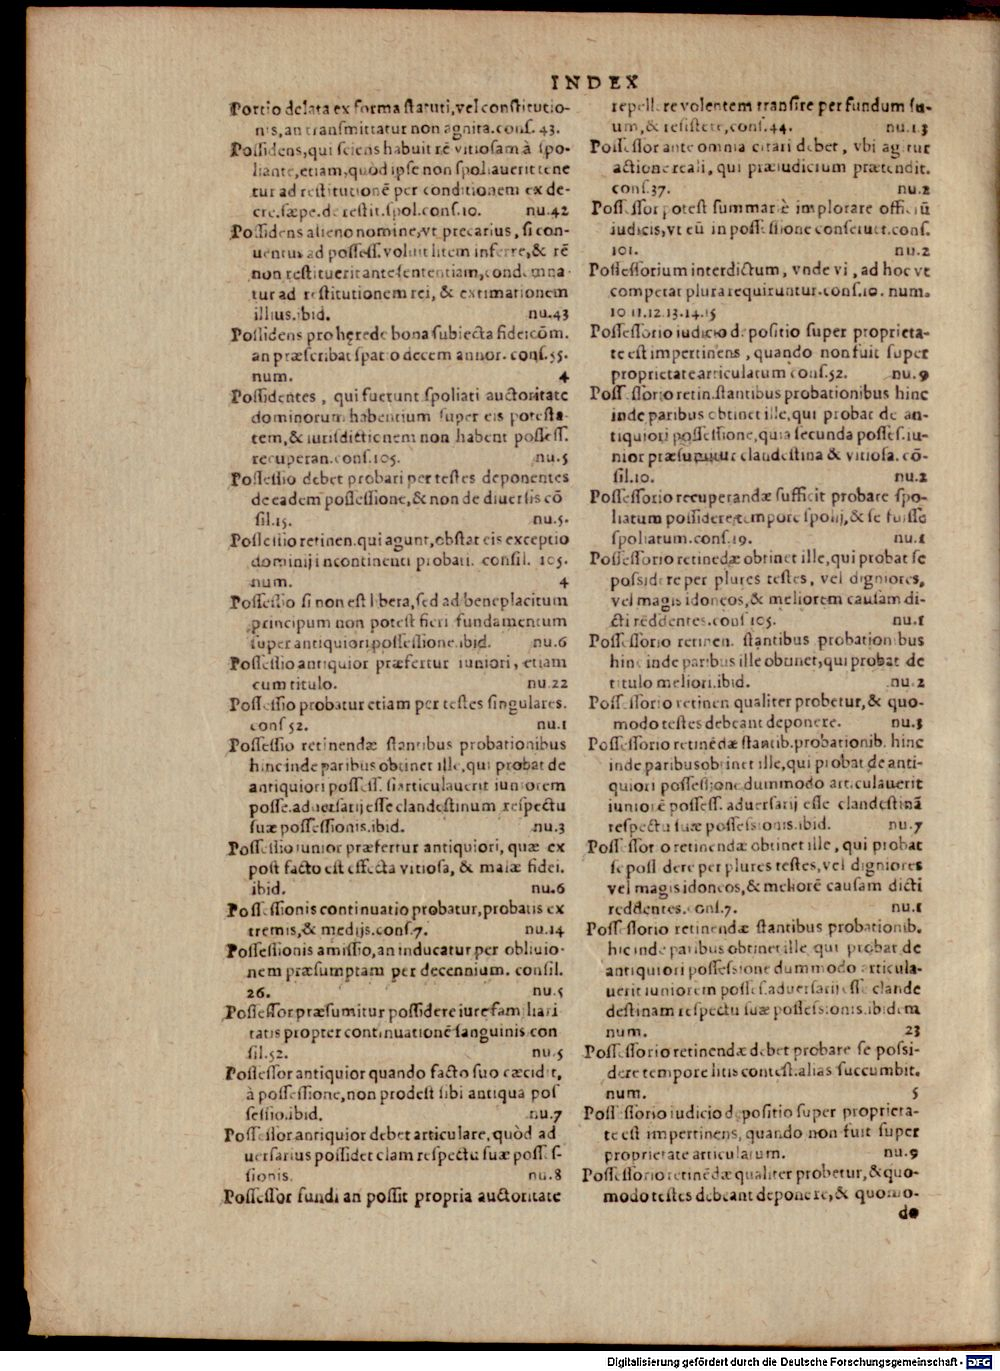 INDEX
Portio delata ex forma statuti, vel constitutio-
nis, an transmittatur non agnita. cons. 43.
Possidens, qui sciens habuit rē vitiosam à spo-
liante, etiam, quòd ipse non spoliauerit tene
tur ad restitutionē per conditionem ex de-
cre. sæpe. de restit. spol. cons. 10. nu. 42
Possidens alieno nomine, vt precarius, si con-
uentus ad possess. voluit litem inferre, & rē
non restituerit ante sententiam, condemna-
tur ad restitutionem rei, & extimationem
illius. ibid. nu. 43
Possidens pro hęrede bona subiecta fideicōm.
an præscribat spatio decem annor. cons. 55.
num. 4
Possidentes, qui fuerunt spoliati auctoritate
dominorum habentium super eis potesta-
tem, & iurisdictionem non habent possess.
recuperan. cons. 105. nu. 5
Possessio debet probari per testes deponentes
de eadem possessione, & non de diuersis cō
sil. 15. nu. 5.
Possessio retinen. qui agunt, obstat eis exceptio
dominij incontinenti probati. consil. 105.
num. 4
Possessio si non est libera, sed ad beneplacitum
principum non potest fieri fundamentum
super antiquiori possessione. ibid. nu. 6
Possessio antiquior præfertur iuniori, etiam
cum titulo. nu. 22
Possessio probatur etiam per testes singulares.
cons 52. nu. 1
Possessio retinendæ stantibus probationibus
hinc inde paribus obtinet ille, qui probat de
antiquiori possess. si articulauerit iuniorem
posse. aduersarij esse clandestinum respectu
suæ possessionis. ibid. nu. 3
Possessio iunior præfertur antiquiori, quæ ex
post facto est effecta vitiosa, & malæ fidei.
ibid. nu. 6
Possessionis continuatio probatur, probatis ex
tremis, & medijs. cons. 7. nu. 14
Possessionis amissio, an inducatur per obliuio-
nem præsumptam per decennium. consil.
26. nu. 5
Possessor præsumitur possidere iure familiari
tatis propter continuationē sanguinis con
sil. 52. nu. 5
Possessor antiquior quando facto suo cæcidit,
à possessione, non prodest sibi antiqua pos
sessio. ibid. nu. 7
Possessor antiquior debet articulare, quòd ad
uersarius possidet clam respectu suæ posses-
sionis. nu. 8
Possessor fundi an possit propria auctoritate
repellere volentem transire per fundum su-
um, & resistere, cons. 44. nu. 13
Possessor ante omnia citari debet, vbi agitur
actione reali, qui præiudicium prætendit.
cons. 37. nu. 2
Possessor potest summariè implorare officiū
iudicis, vt eū in possessione conseruet. cons.
101. nu. 2
Possessorium interdictum, vnde vi, ad hoc vt
competat plura requiruntur. cons. 10. num.
10 11. 12. 13. 14. 15
Possessorio iudicio depositio super proprieta-
te est impertinens, quando non fuit super
proprietate articulatum cons. 52. nu. 9
Possessorio retin. stantibus probationibus hinc
inde paribus obtinet ille, qui probat de an-
tiquiori possessione, quia secunda posses. iu-
nior præsumitur clandestina & vitiosa. cō-
sil. 10. nu. 2
Possessorio recuperandæ sufficit probare spo-
liatum possidere, tempore spolij, & se fuisse
spoliatum. cons. 19. nu. 1
Possessorio retinēdæ obtinet ille, qui probat se
possidere per plures testes, vel digniores,
vel magis idoneos, & meliorem causam di-
cti reddentes. cons 105. nu. 1
Possessorio retinen. stantibus probationibus
hinc inde paribus ille obtinet, qui probat de
titulo meliori. ibid. nu. 2
Possessorio retinen qualiter probetur, & quo-
modo testes debeant deponere. nu. 3
Possessorio retinēdæ stantib. probationib. hinc
inde paribus obtinet ille, qui probat de anti-
quiori possessione dummodo articulauerit
iuniorē possess. aduersarij esse clandestinā
respectu suæ possessionis. ibid. nu. 7
Possessorio retinendæ obtinet ille, qui probat
se possidere per plures testes, vel digniores
vel magis idoneos, & meliorē causam dicti
reddentes. cons. 7. nu. 1
Possessorio retinendæ stantibus probationib.
hic inde paribus obtinet ille qui probat de
antiquiori possessione dummodo articula-
uerit iuniorem posses. aduersarij esse clande
destinam respectu suæ possessionis. ibidem
num. 23
Possessorio retinendæ debet probare se possi-
dere tempore litis contest. alias succumbit.
num. 5
Possessorio iudicio depositio super proprieta-
te est impertinens, quando non fuit super
proprietate articulatum. nu. 9
Possessorio retinēdæ qualiter probetur, & quo-
modo testes debeant deponere, & quomo-
do
Digitalisierung gefördert durch die Deutsche Forschungsgemeinschaft - DFG